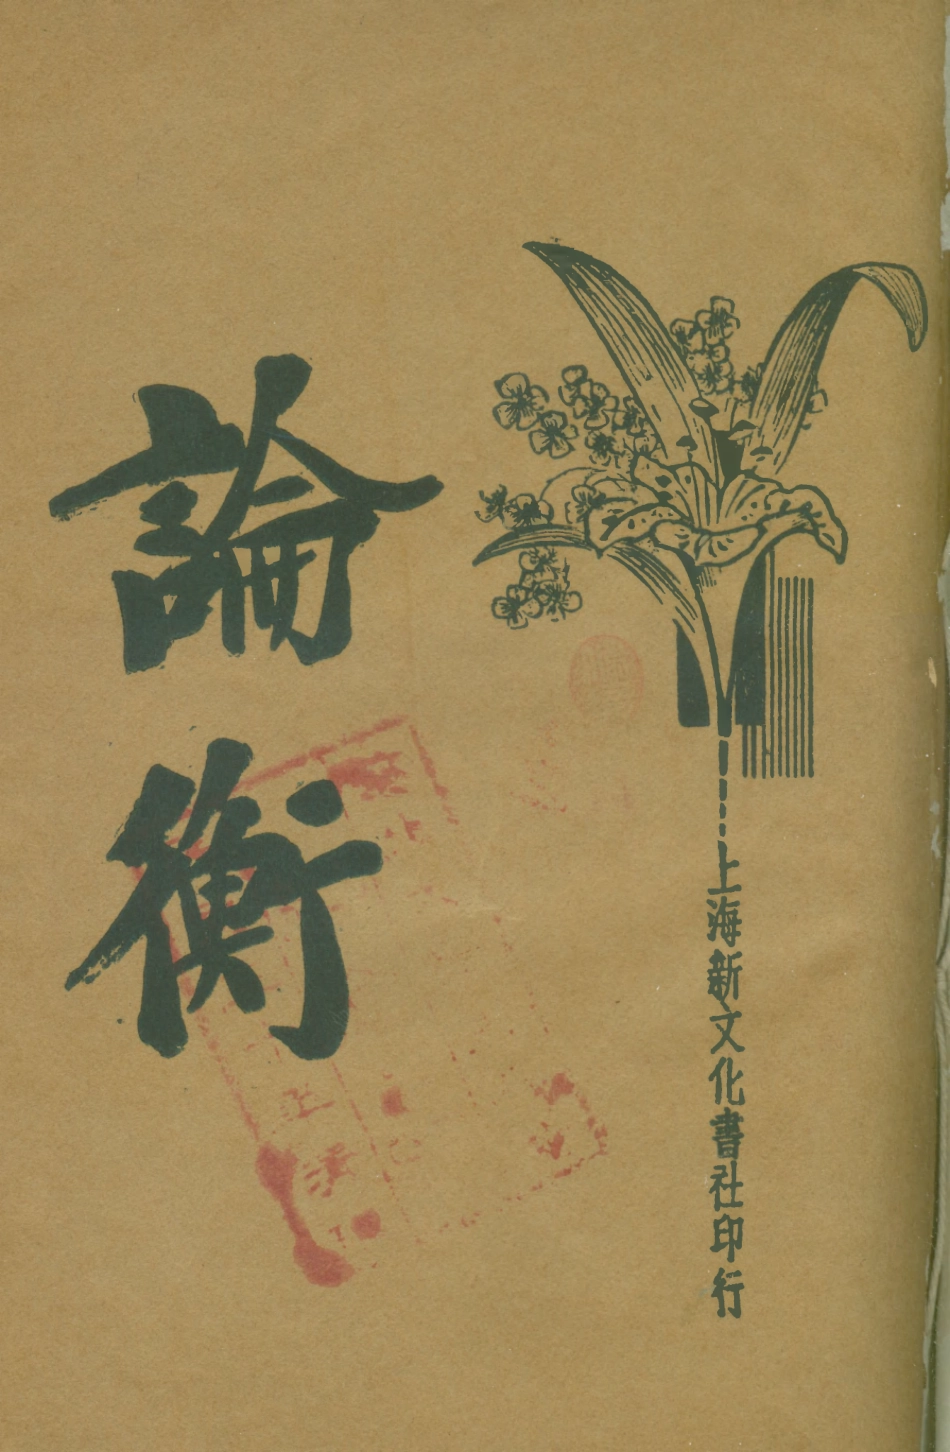 論衡
上海新文化書社印行